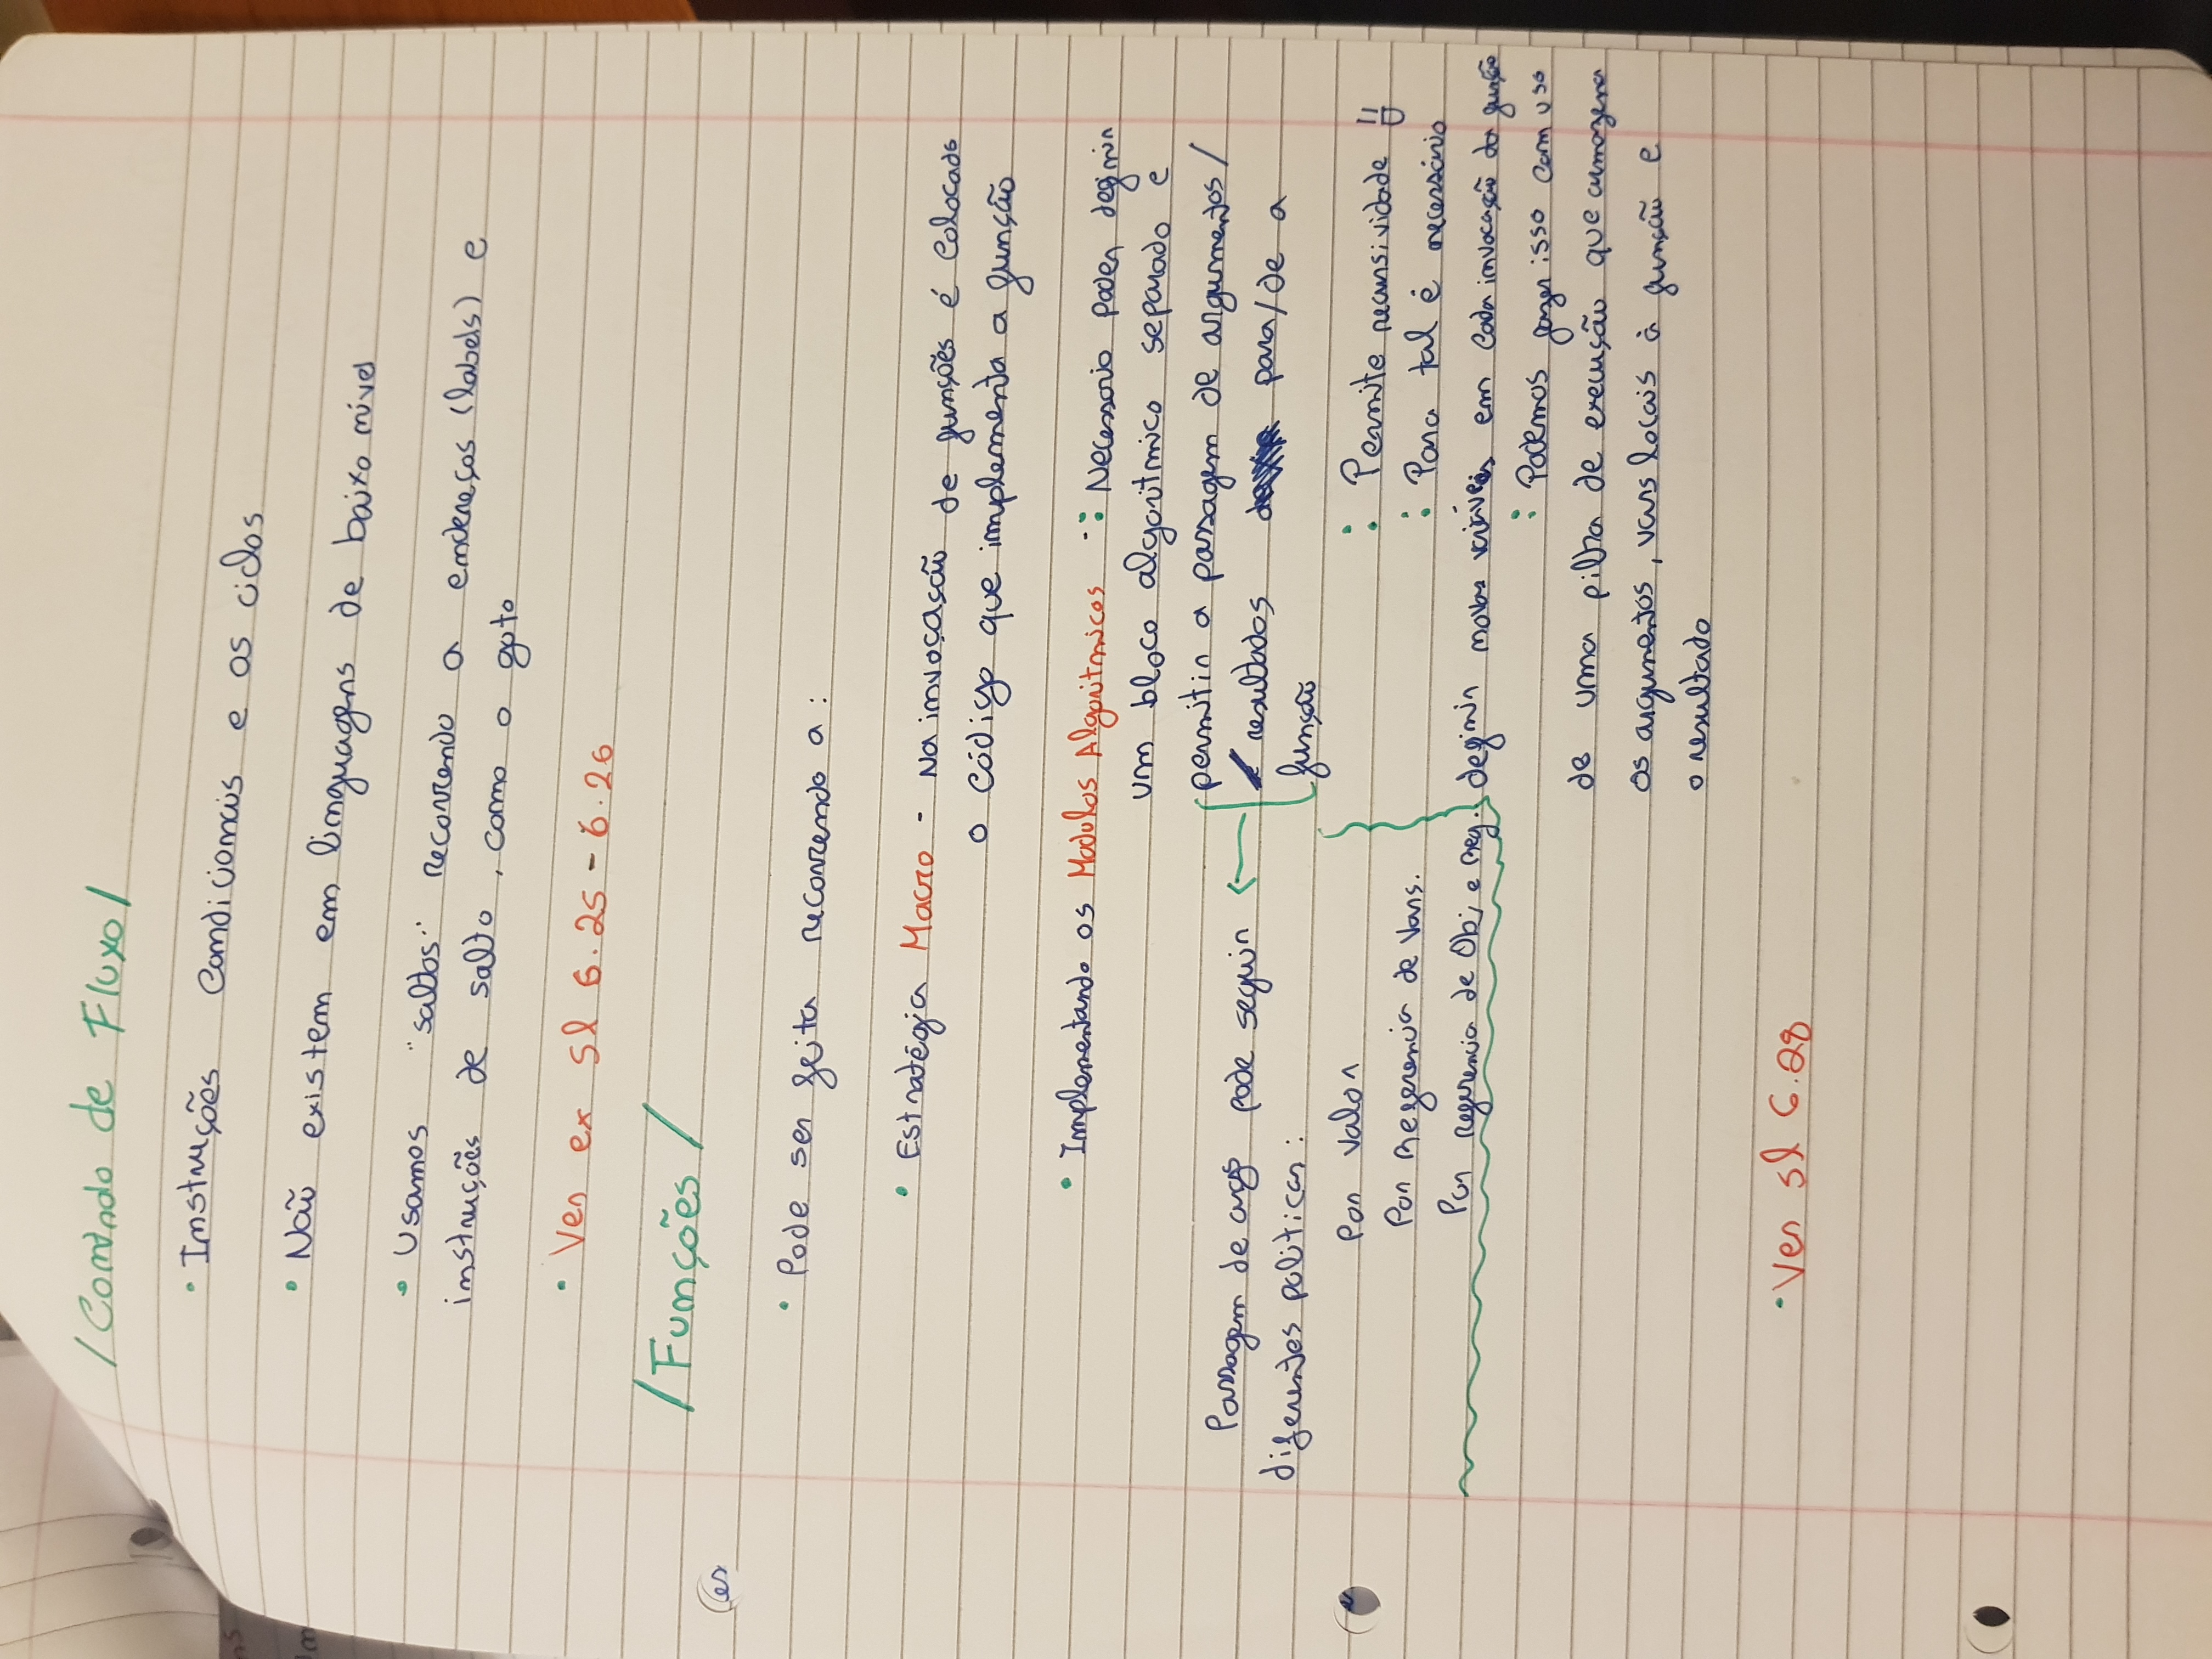 /Comando de Fluxo/
• Instruções Condicionais e os ciclos
• Não existem em linguagens de baixo nível
• Usamos "saltos" recorrendo a endereços (labels) e
instruções de salto, como o goto
• Ver ex sl 6.25 - 6.26
/Funções/
• Pode ser feita recorrendo a:
• Estratégia Macro - Na invocação de funções é colocado
o código que implementa a função
• Implementando os Modulos Algoritmicos -: Necessario poder definir
um bloco algoritmico separado e
permitir a passagem de argumentos/
resultados para/de a
função
Passagem de args pode seguir
diferentes politicas:
Por valor
Por Referencia de Vars.
Por referencia de Obj e Reg.
: Permite recursividade
: Para tal é necessário
definir novas variáveis em cada invocação da função
: Podemos fazer isso com uso
de uma pilha de execução que armazena
os argumentos, vars locais à função e
o resultado
• Ver sl 6.28